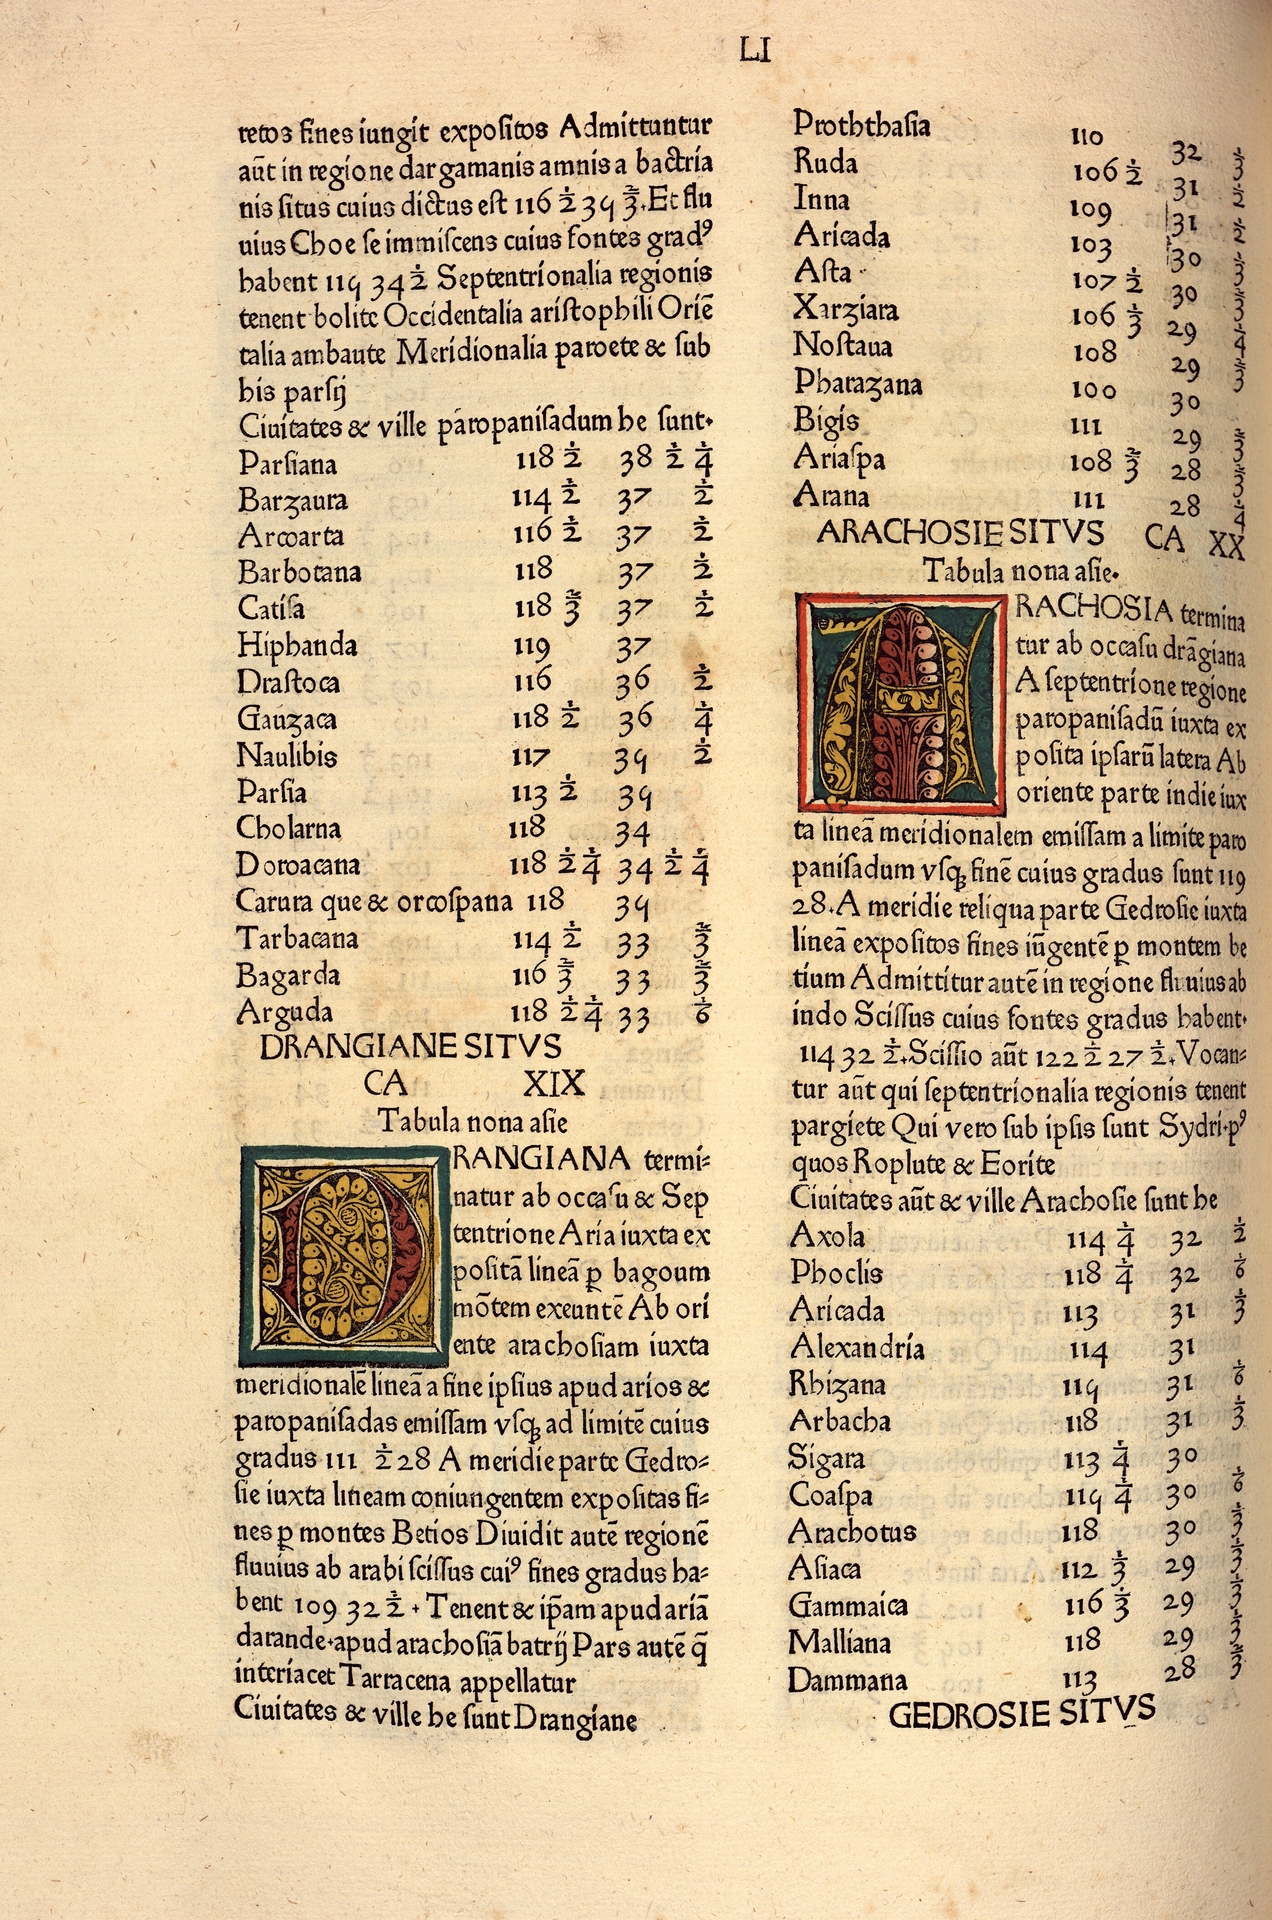 LI
retos fines iungit expositos Admittuntur
aūt in regione dargamanis amnis a bactria
nis situs cuius dictus est 116 ½ 39 ⅔. Et flu
uius Choe se immiscens cuius fontes gradꝰ
habent 119 34 ½ Septentrionalia regionis
tenent bolite Occidentalia aristophili Oriē
talia ambaute Meridionalia paroete & sub
his parsij
Ciuitates & ville paropanisadum he sunt.
Parsiana 118 ½ 38 ½ ¼
Barzaura 114 ½ 37 ½
Arcoarta 116 ½ 37 ½
Barbotana 118 37 ½
Catisa 118 ⅔ 37 ½
Hiphanda 119 37
Drastoca 116 36 ½
Gauzaca 118 ½ 36 ¼
Naulibis 117 39 ½
Parsia 113 ½ 39
Cholarna 118 34
Doroacana 118 ½ ¼ 34 ½ ¼
Carura que & orcospana 118 39
Tarbacana 114 ½ 33 ⅔
Bagarda 116 ⅔ 33 ⅔
Arguda 118 ½ ¼ 33 ⅙
DRANGIANE SITVS
CA XIX
Tabula nona asie
DRANGIANA termi=
natur ab occasu & Sep
tentrione Aria iuxta ex
positā lineā ꝑ bagoum
mōtem exeuntē Ab ori
ente arachosiam iuxta
meridionalē lineā a fine ipsius apud arios &
paropanisadas emissam vsqꝫ ad limitē cuius
gradus 111 ½ 28 A meridie parte Gedro=
sie iuxta lineam coniungentem expositas fi=
nes ꝑ montes Betios Diuidit autē regionē
fluuius ab arabi scissus cuiꝰ fines gradus ha=
bent 109 32 ½ . Tenent & ip̄am apud ariā
darande.apud arachosiā batrij Pars autē q̄
interiacet Tarracena appellatur
Ciuitates & ville he sunt Drangiane
Proththasia 110 32 ⅓
Ruda 106 ½ 31 ½
Inna 109 31 ½
Aricada 103 30 ⅓
Asta 107 ½ 30 ⅔
Xarziara 106 ⅓ 29 ¼
Nostaua 108 29 ⅔
Pharazana 100 30
Bigis 111 29 ⅔
Ariaspa 108 ⅔ 28 ⅔
Arana 111 28 ¼
ARACHOSIE SITVS CA XX
Tabula nona asie.
ARACHOSIA termina
tur ab occasu drāgiana
A septentrione regione
paropanisadū iuxta ex
posita ipsarū latera Ab
oriente parte indie iux
ta lineā meridionalem emissam a limite paro
panisadum vsqꝫ finē cuius gradus sunt 119
28.A meridie reliqua parte Gedrosie iuxta
lineā expositos fines iūgentē ꝑ montem be
tium Admittitur autē in regione fluuius ab
indo Scissus cuius fontes gradus habent.
114 32 ½.Scissio aūt 122 ½ 27 ½.Vocan=
tur aūt qui septentrionalia regionis tenent
pargiete Qui vero sub ipsis sunt Sydri.pꝰ
quos Roplute & Eorite
Ciuitates aūt & ville Arachosie sunt he
Axola 114 ¼ 32 ½
Phoclis 118 ¼ 32 ⅙
Aricada 113 31 ⅓
Alexandria 114 31
Rhizana 119 31 ⅙
Arbacha 118 31 ⅓
Sigara 113 ¼ 30
Coaspa 119 ¼ 30 ⅙
Arachotus 118 30 ⅓
Asiaca 112 ⅓ 29 ⅓
Gammaica 116 ⅓ 29 ⅓
Malliana 118 29 ⅓
Dammana 113 28 ⅔
GEDROSIE SITVS